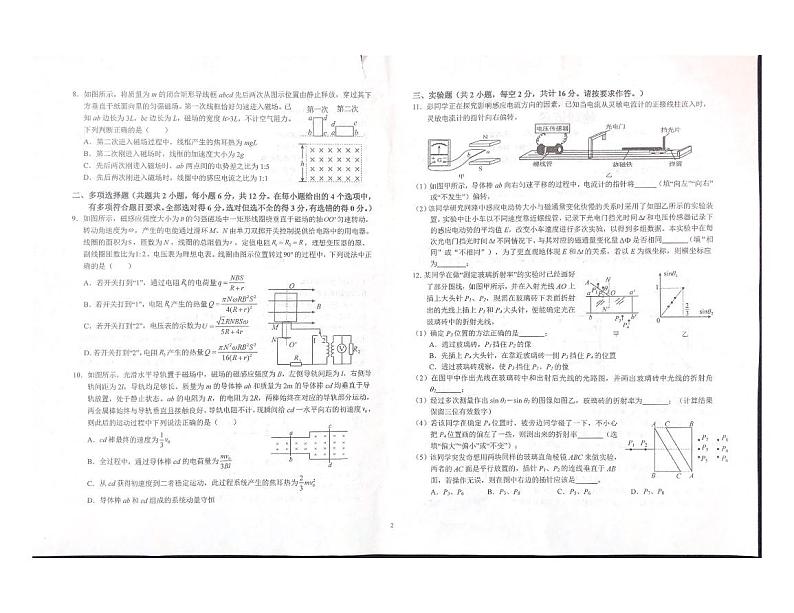 8. 如图所示，将质量为 m 的闭合矩形导线框 abcd 先后两次从图示位置由静止释放，穿过其下
方垂直于纸面向里的匀强磁场。第一次线框恰好匀速进入磁场。已
知 ab 边长为 3L，bc 边长为 L，磁场的宽度 h>3L，不计空气阻力。
下列判断正确的是（ ）
第一次 第二次
A．第二次进入磁场过程中，线框产生的焦耳热为 mgL
B．第二次刚进入磁场时，线框的加速度大小为 2g
C．先后两次刚进入磁场时，ab 两点间的电势差之比为 1:5
D．先后两次刚进入磁场时，线圈中的感应电流之比为 1:1
二、多项选择题（共题共 2 小题，每小题 6 分，共 12 分。在每小题给出的 4 个选项中，
有多项符合题目要求。全部选对得 6 分，选对但选不全的得 3 分，有选错的得 0 分。）
9. 如图所示，磁感应强度大小为 B 的匀强磁场中一矩形线圈绕垂直于磁场的轴 OO′匀速转动，
转动角速度为ω，产生的电能通过滑环 M、N 由单刀双掷开关控制提供给电路中的用电器。
线圈的面积为 S，匝数为 N，线圈的总电阻为 r，定值电阻 R₁=R₂=R，理想变压器的原、
副线圈匝数比为 1:2，电压表为理想电表。线圈由图示位置转过 90°的过程中，下列说法中正
确的是（ ）
A．若开关打到“1”，通过电阻 R₁的电荷量 q=NBS/(R+r)
B．若开关打到“1”，电阻 R₁产生的热量 Q=πN²ωRB²S²/4(R+r)²
C．若开关打到“2”，电压表的示数为 U=√2RNBSω/(5R+4r)
D. 若开关打到“2”,电阻 R₂产生的热量 Q=πN²ωRB²S²/16(R+r)²
10. 如图所示，光滑水平导轨置于磁场中，磁场的磁感应强度为 B，左侧导轨间距为 l，右侧导
轨间距为 2l，导轨均足够长。质量为 m 的导体棒 ab 和质量为 2m 的导体棒 cd 均垂直于导
轨放置，处于静止状态。ab 的电阻为 R，cd 的电阻为 2R，两棒始终在对应的导轨部分运动，
两金属棒始终与导轨垂直且接触良好，导轨电阻不计。现瞬间给 cd 一水平向右的初速度 v₀，
则此后的运动过程中下列说法正确的是（ ）
A．cd 棒最终的速度为 1/3 v₀
B．全过程中，通过导体棒 cd 的电荷量为 mv₀/3Bl
C．从 cd 获得初速度到二者稳定运动，此过程系统产生的焦耳热为 2/3 mv₀²
D．导体棒 ab 和 cd 组成的系统动量守恒
三、实验题（共 2 小题，每空 2 分，共计 16 分。请按要求作答。）
11. 彭同学正在探究影响感应电流方向的因素，已知当电流从灵敏电流计的正接线柱流入时，
灵敏电流计的指针向右偏转。
电压传感器 光电门 挡光片
螺线管 强磁铁 弹簧
甲 乙
（1）如图甲所示，导体棒 ab 向右匀速平移的过程中，电流计的指针将______（填“向左”“向右”
或“不发生”）偏转。
（2）该同学研究回路中感应电动势大小与磁通量变化快慢的关系时采用了如图乙所示的实验装
置，实验中让小车以不同速度靠近螺线管，记录下光电门挡光时间Δt 和电压传感器记录下
的感应电动势的平均值 E，改变小车速度进行多次实验，以得到多组数据。本实验中在每
次光电门挡光时间Δt 不同情况下，与其对应的磁通量变化量ΔΦ 是否相同______（填“相
同”或“不相同”），为了更直观地体现 E 和Δt 的关系，若以 E 为纵坐标，则横坐标应
为______；
12. 某同学在做“测定玻璃折射率”的实验时已经画好
了部分图线，如图甲所示，并在入射光线 AO 上
插上大头针 P₁、P₂，现需在玻璃砖下表面折射
出的光线上插上 P₃和 P₄大头针，便能确定光在
玻璃砖中的折射光线。
甲 乙
（1）确定 P₃位置的方法正确的是______；
A．透过玻璃砖，P₃挡住 P₂的像
B．先插上 P₄大头针，在靠近玻璃砖一侧 P₃挡住 P₄的位置
C．透过玻璃砖观察，使 P₃挡住 P₁、P₂的像
（2）在图甲中作出光线在玻璃砖中和出射后光线的光路图，并画出玻璃砖中光线的折射角
θ₂______；
（3）经过多次测量作出 sinθ₁−sinθ₂的图像如图乙，玻璃砖的折射率为______；（计算结果
保留三位有效数字）
（4）若该同学在确定 P₄位置时，被旁边同学碰了一下，不小心
把 P₄位置画的偏左了一些，则测出来的折射率______（选
填“偏大”“偏小”或“不变”）；
（5）该同学突发奇想用两块同样的玻璃直角棱镜 ABC 来做实验，
两者的 AC 面是平行放置的，插针 P₁、P₂的连线垂直于 AB
面，若操作无误，则在图中右边的插针应该是______。
A．P₃、P₆ B．P₃、P₈ C．P₅、P₆ D．P₇、P₈
2